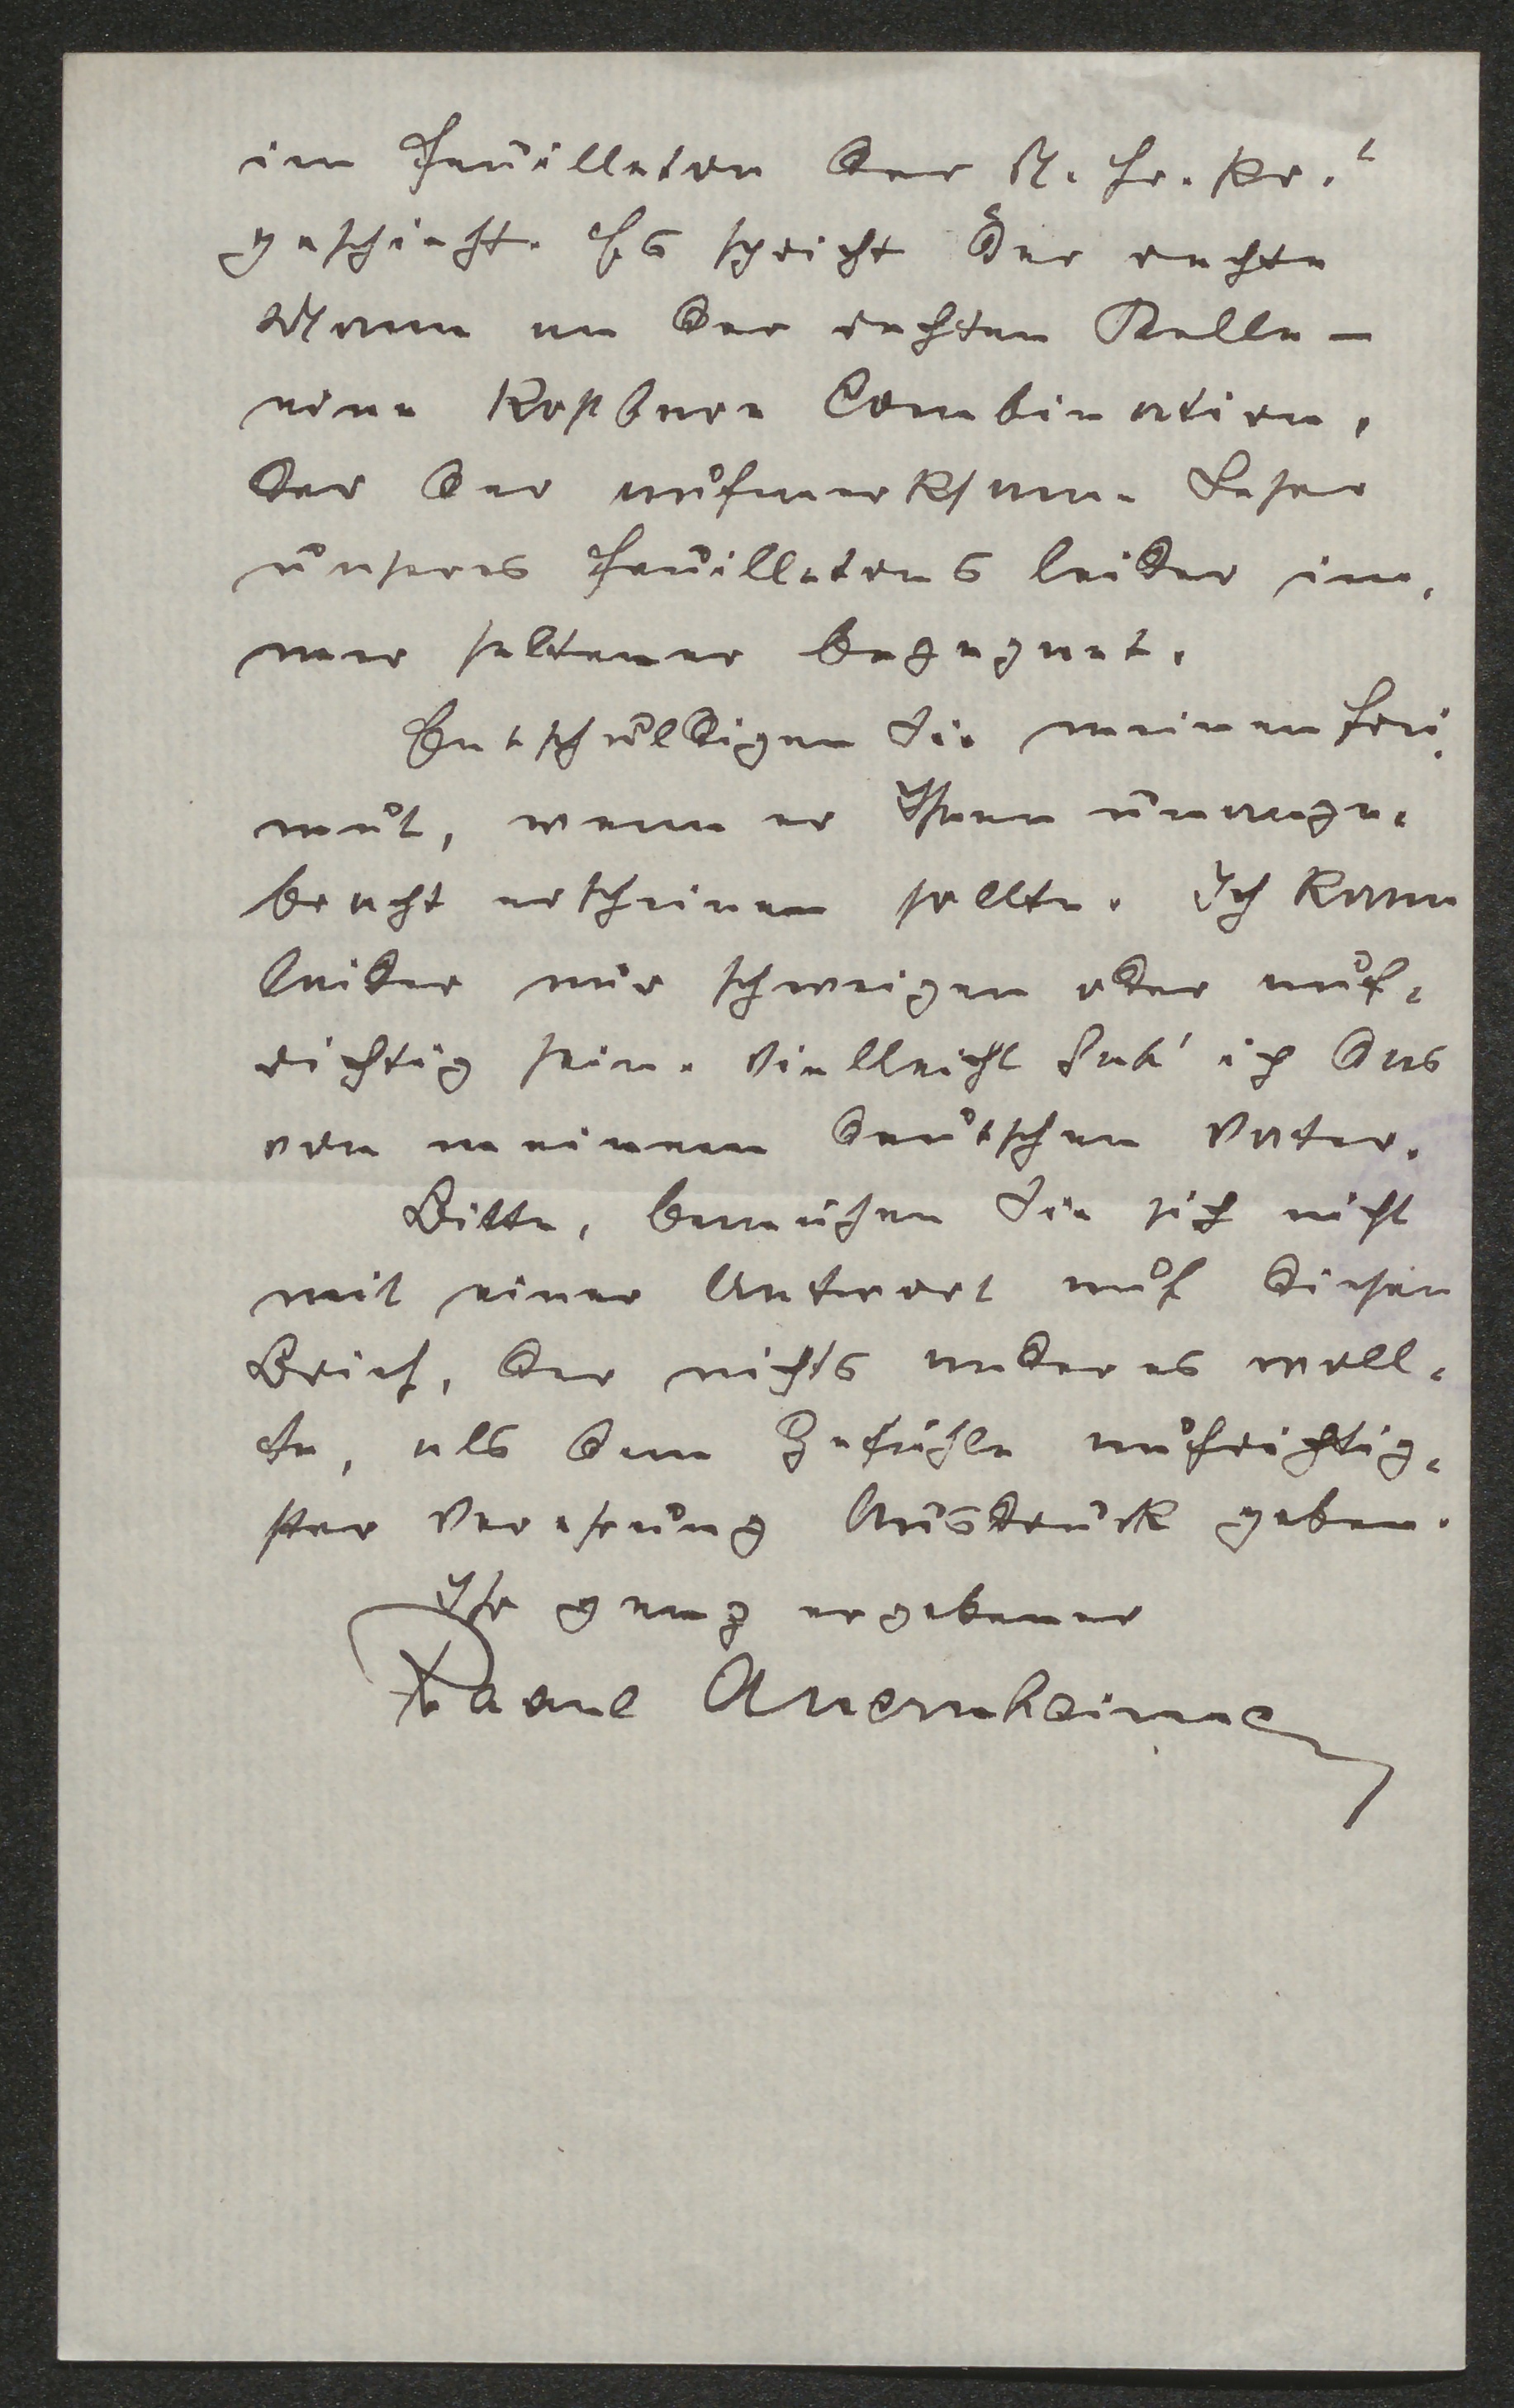 im Feuilleton der N. Fr. Pr.“
geschieht. Es spricht der rechte
Mann an der rechten Stelle –
eine kostbare Combination,
der der aufmerksame Leser
unseres Feuilletons leider im-
mer seltener begegnet.
Entschuldigen Sie meinen Frei-
mut, wenn er Ihnen unange-
bracht erscheinen sollte. Ich kann
leider nur schweigen oder auf-
richtig sein. Vielleicht hab' ich das
von meinem deutschen Vater.
Bitte, bemühen Sie sich nicht
mit einer Antwort auf diesen
Brief, der nichts anderes woll-
te, als dem Gefühle aufrichtig-
ster Verehrung Ausdruck geben.
Ihr ganz ergebener
Raoul Auernheimer